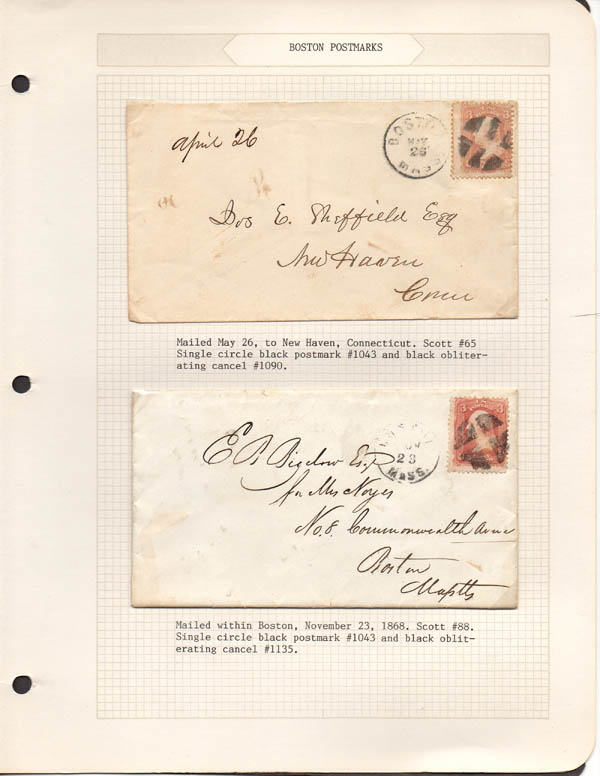 BOSTON POSTMARKS
April 26
BOSTON
MAY
26
MASS
Dos E. Sheffield Esq
New Haven
Conn
Mailed May 26, to New Haven, Connecticut. Scott #65
Single circle black postmark #1043 and black obliter-
ating cancel #1090.
3
23
MASS.
E B Bigelow Esq
for Mrs Noyes
No. 8. Commonwealth Avenue
Boston
Masstts
Mailed within Boston, November 23, 1868. Scott #88.
Single circle black postmark #1043 and black oblit-
erating cancel #1135.